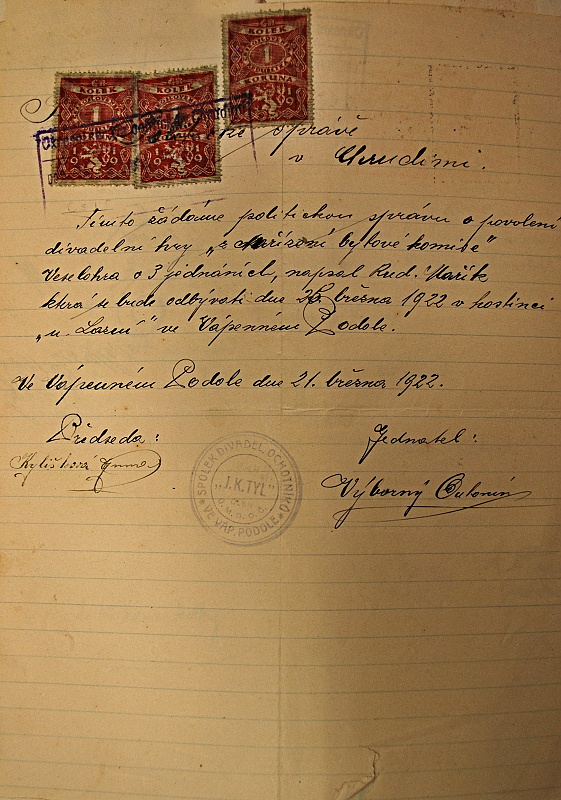 KOLEK
1
KORUNA
KOLEK
1
KOLEK
1
správě
v Chrudimi.
Tímto žádáme politickou správu o povolení
divadelní hry „z nařízení bytové komise"
Veselohra o 3 jednáních, napsal Rud. Mařík
která se bude odbývati dne 26. března 1922 v hostinci
„u Larů" ve Vápenném Podole.
Ve Vápenném Podole dne 21. března 1922.
Předseda: Jednatel:
Anna Výborný Antonín
SPOLEK DIVADEL. OCHOTNÍKŮ
„J.K. TYL"
VE VÁP. PODOLE